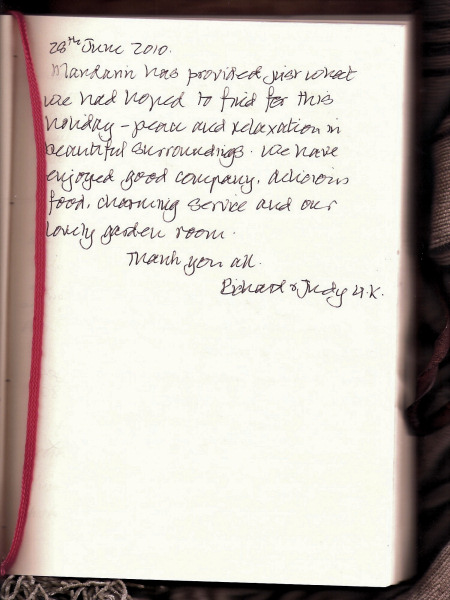 28th June 2010.
Mandarin has provided just what
we had hoped to find for this
holiday - peace and relaxation in
beautiful surroundings. We have
enjoyed good company, delicious
food, charming service and our
lovely garden room.
Thank you all.
Richard & Judy U.K.